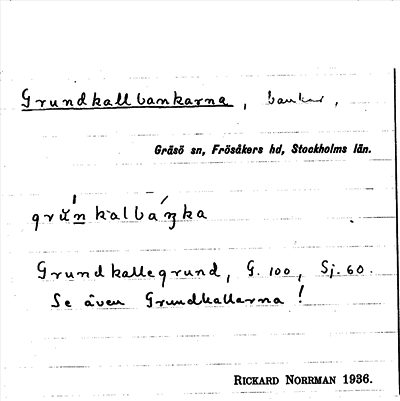 Grundkallbankarna, bankar,
Gräsö sn, Frösåkers hd, Stockholms län.
grŭ́n kalbáŋka
Grundkallegrund, G. 100, Sj. 60.
Se även Grundkallarna!
RICKARD NORRMAN 1936.